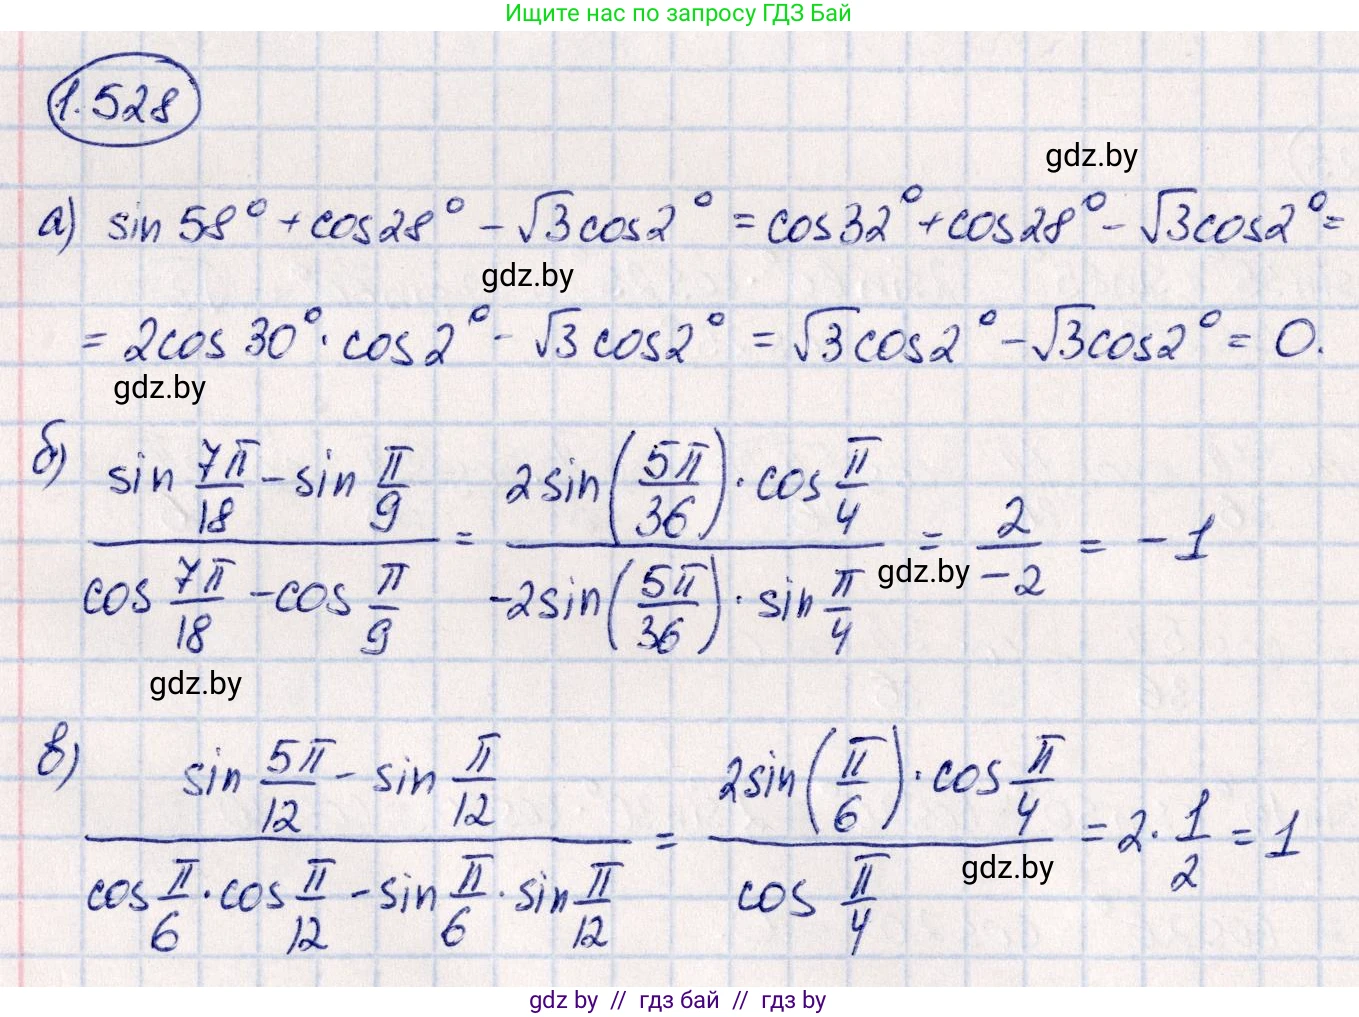 Ищите нас по запросу ГДЗ Бай
1.528
gdz.by
а) sin 58° + cos 28° - √3 cos 2° = cos 32° + cos 28° - √3 cos 2° =
gdz.by
= 2 cos 30° · cos 2° - √3 cos 2° = √3 cos 2° - √3 cos 2° = 0.
gdz.by
б) (sin 7π/18 - sin π/9) / (cos 7π/18 - cos π/9) = (2 sin(5π/36) · cos π/4) / (-2 sin(5π/36) · sin π/4) = 2/-2 = -1
gdz.by
gdz.by
в) (sin 5π/12 - sin π/12) / (cos π/6 · cos π/12 - sin π/6 · sin π/12) = (2 sin(π/6) · cos π/4) / (cos π/4) = 2 · 1/2 = 1
gdz.by
gdz by // гдз бай // гдз by